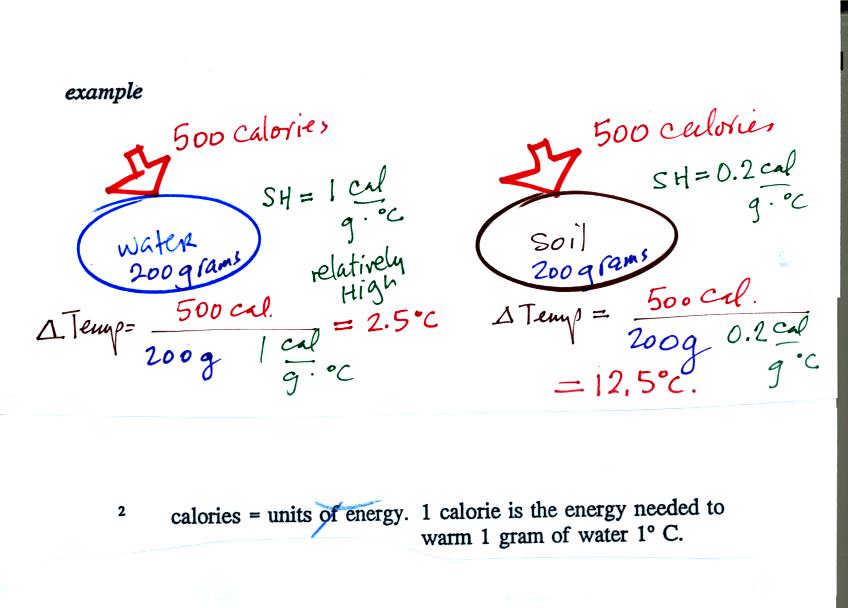 example
500 calories
SH = 1 cal
g · °C
water
200 grams
relatively
High
Δ Temp = 500 cal. = 2.5°C
200 g 1 cal
g · °C
500 calories
SH = 0.2 cal
g · °C
soil
200 grams
Δ Temp = 500 cal.
200g 0.2 cal
g °C
= 12.5°C.
2 calories = units of energy. 1 calorie is the energy needed to
warm 1 gram of water 1° C.